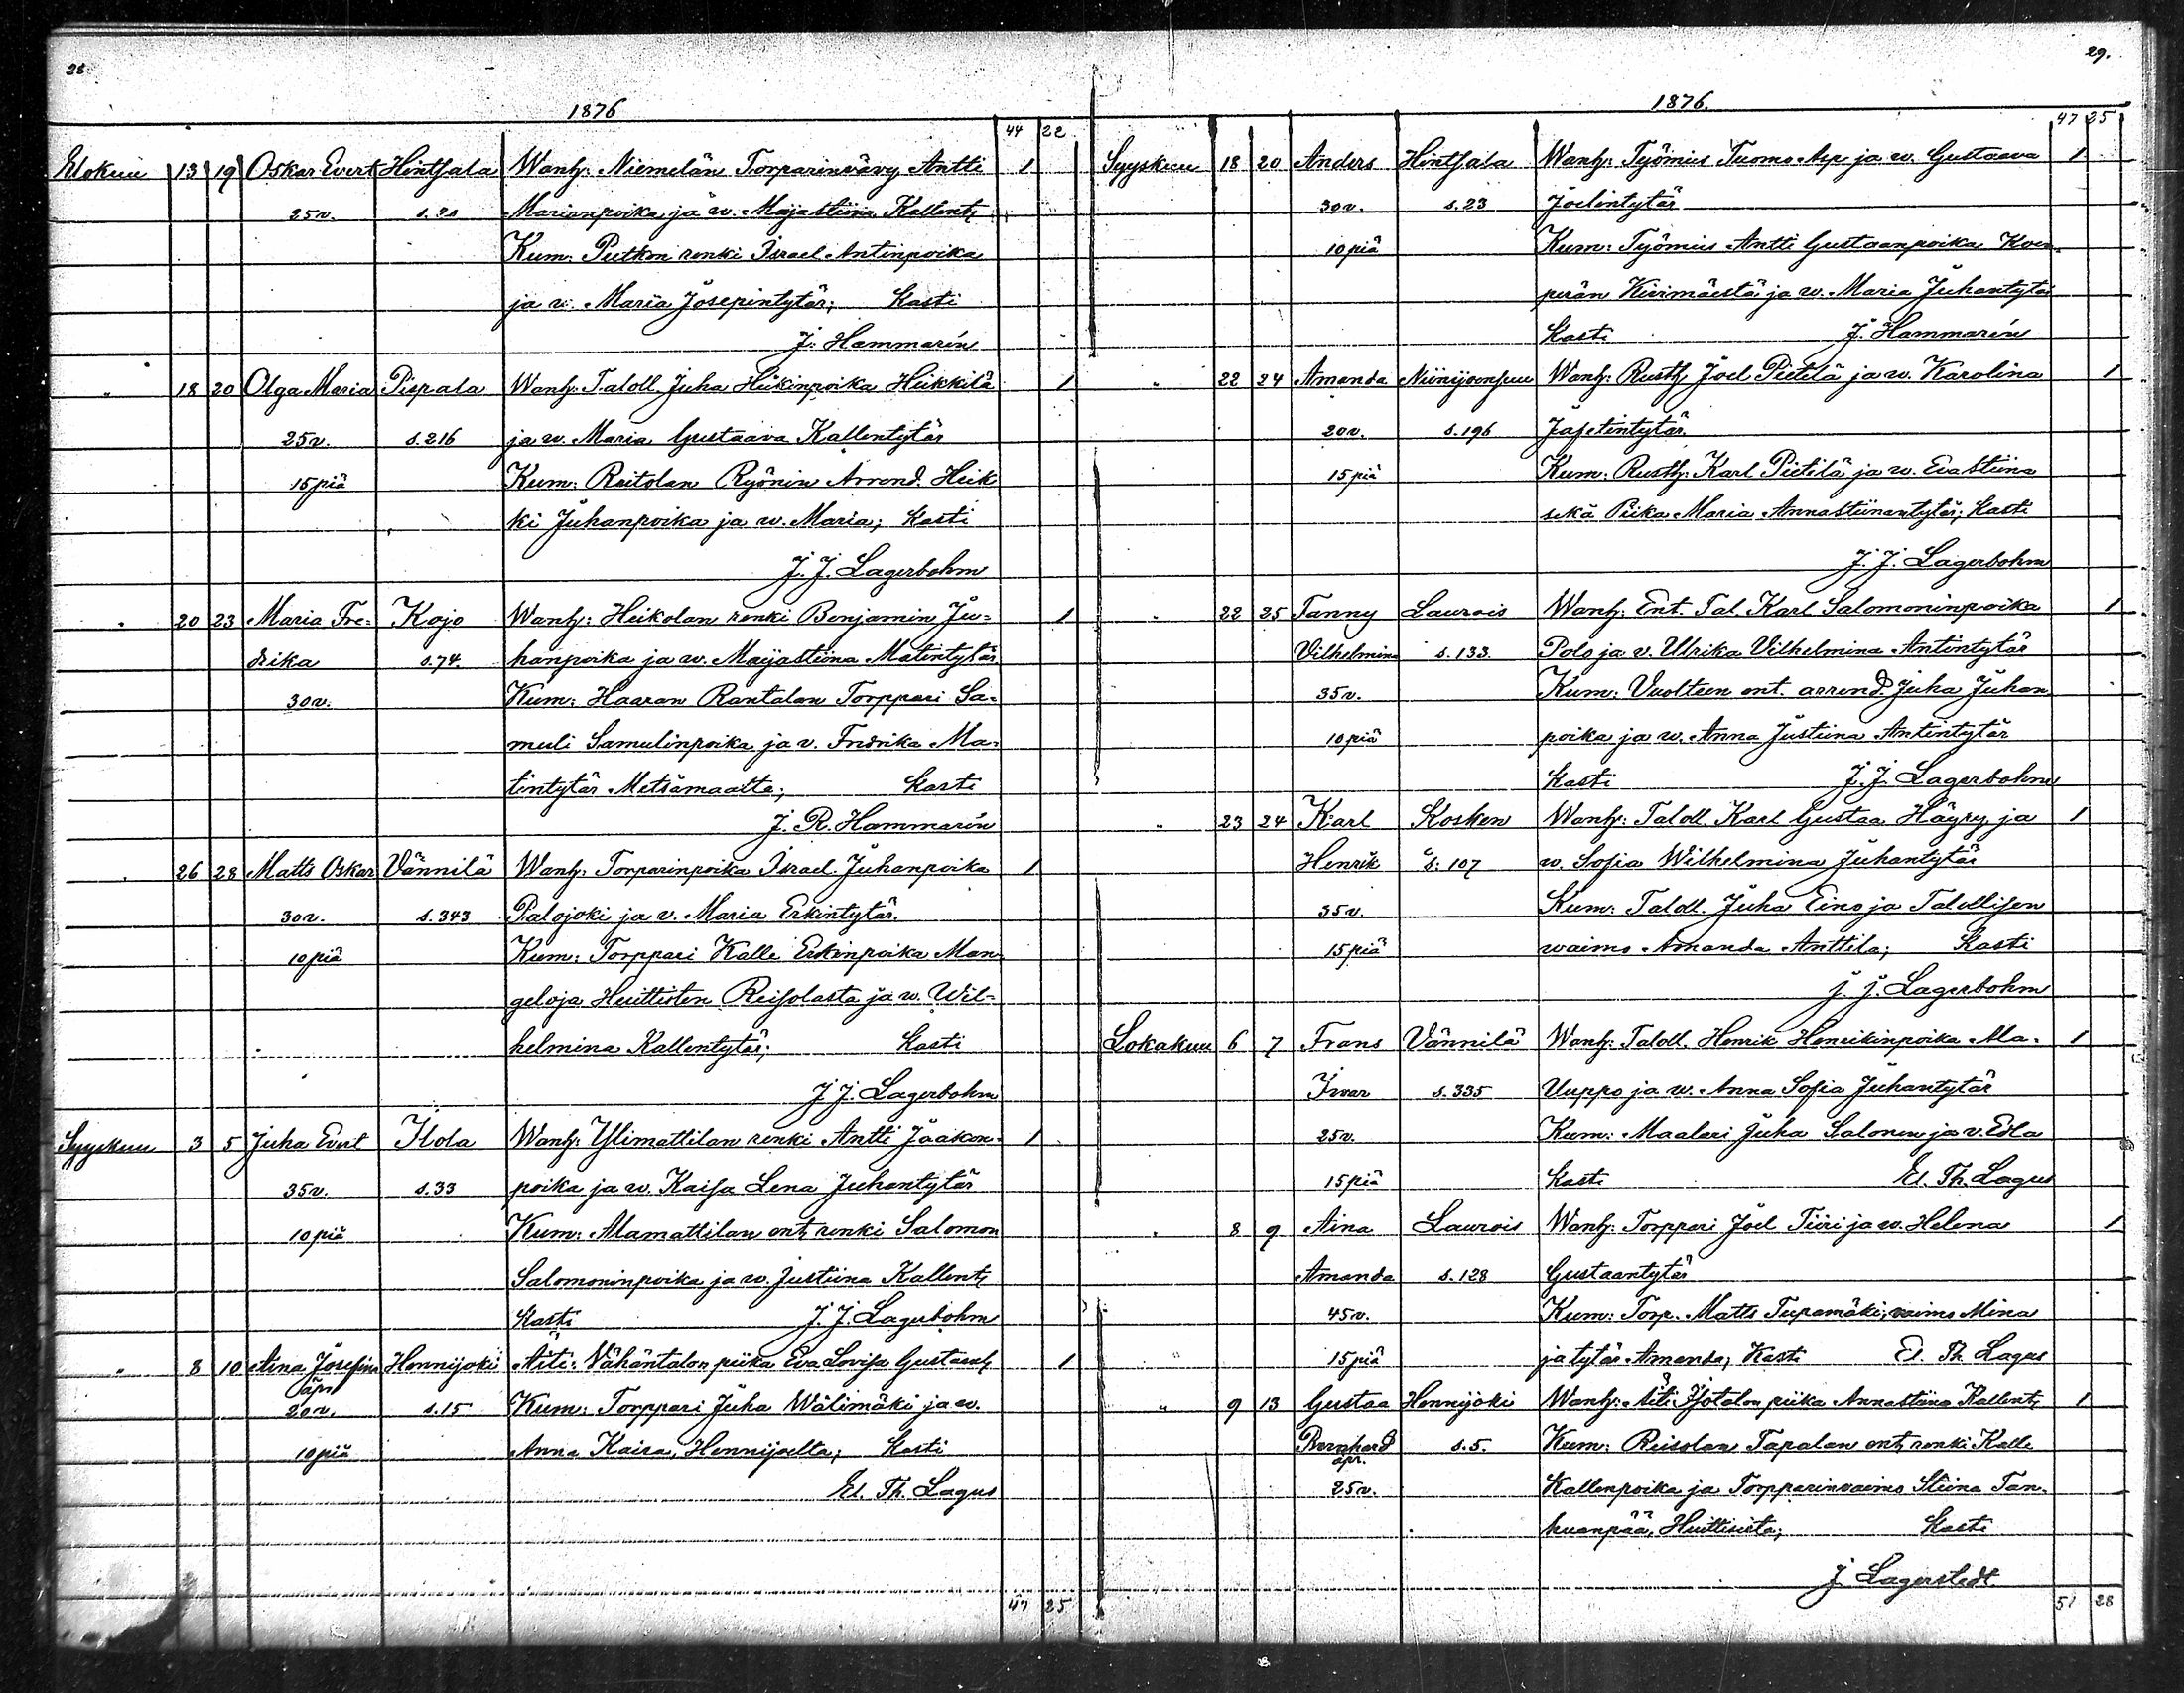 28
1876
44 22
Elokuu 13 19 Oskar Evert Hintsala Wanh: Niemelän Torparinvävy Antti 1
25v. s.20 Marianpoika ja w. Maijastiina Kallent.
Kum: Putkon renki Israel Antinpoika
ja v. Maria Josepintytär; Kasti
J. Hammarén
" 18 20 Olga Maria Pispala Wanh: Taloll. Juha Heikinpoika Heikkilä 1
25v. s.216 ja w. Maria Gustaava Kallentytär
15 piä Kum: Raitolan Ryönin Arrend. Heik
ki Juhanpoika ja w. Maria; Kasti
J. J. Lagerbohm
" 20 23 Maria Fre= Kojo Wanh: Heikolan renki Benjamin Ju= 1
drika s.74. hanpoika ja w. Maijastiina Matintytär
30v. Kum: Haaran Rantalan Torppari Sa=
muli Samulinpoika ja v. Fredrika Ma=
tintytär Metsämaalta; Kasti
J. R. Hammarén
" 26 28 Matts Oskar Vännilä Wanh: Torparinpoika Israel Juhanpoika 1
30v. s.343 Palojoki ja v. Maria Erkintytär.
10 piä Kum: Torppari Kalle Erkinpoika Man
geloja Huittisten Reisolasta ja w. Wil=
helmina Kallentytär; Kasti
J. J. Lagerbohm
Syyskuu 3 5 Juha Evert Ilola Wanh: Ylimattilan renki Antti Jaakon= 1
35v. s.33 poika ja w. Kaisa Lena Juhantytär
10 piä Kum: Alamattilan ent. renki Salomon
Salomoninpoika ja w. Justiina Kallent.
Kasti J. J. Lagerbohm
" 8 10 Aina Josefina Honnijoki Äiti: Vähäntalon piika Eva Lovisa Gustaat. 1
äpr.
20v. s.15 Kum: Torppari Juha Wälimäki ja w.
10 piä Anna Kaisa, Honnijoelta; Kasti
El. Th. Lagus
47 25
29.
1876.
47 25
Syyskuu 18 20 Anders Hintsala Wanh: Työmies Tuomo Asp ja w. Gustaava 1
30v. s.23 Joelintytär
10 piä Kum: Työmies Antti Gustaanpoika
perän Kivimäestä ja w. Maria Juhantytär
Kasti J. Hammarén
" 22 24 Amanda Niinijoensuu Wanh: Rusth. Joel Pietilä ja w. Karolina 1
20v. s.196 Jafetintytär.
15 piä Kum: Rusth: Karl Pietilä ja w. Eva Stiina
sekä Piika Maria Annastiinantytär; Kasti
J. J. Lagerbohm
" 22 25 Fanny Laurois Wanh: Ent. Tal. Karl Salomoninpoika 1
Vilhelmina s.133. Polo ja v. Ulrika Vilhelmina Antintytär
35v. Kum: Vuolteen ent. arrend. Juha Juhan
10 piä poika ja w. Anna Justiina Antintytär
Kasti J. J. Lagerbohm
" 23 24 Karl Kosken Wanh: Taloll. Karl Gustaa Häyry ja 1
Henrik s. 107 w. Sofia Wilhelmina Juhantytär
35v. Kum: Taloll. Juha Eino ja Talollisen
15 piä waimo Amanda Anttila; Kasti
J. J. Lagerbohm
Lokakuu 6 7 Frans Vännilä Wanh: Taloll. Henrik Henrikinpoika Ala= 1
Ivar s.335 Uuppo ja w. Anna Sofia Juhantytär
25v. Kum: Maalari Juha Salonen ja v. Edla
15 piä Kasti El. Th. Lagus
" 8 9 Aina Laurois Wanh: Torppari Joel Tiiri ja w. Helena 1
Amanda s.128 Gustaantytär
45v. Kum: Torp. Matts Tupamäki, vaimo Mina
15 piä ja tytär Amanda; Kasti El. Th. Lagus
" 9 13 Gustaa Honnijoki Wanh: Äiti: Isotalon piika Annastiina Kallent. 1
Bernhard s.5. Kum: Reisolan Tapalan ent. renki Kalle
äpr.
25v. Kallenpoika ja Torpparinvaimo Stiina Tan=
huanpää, Huittisista; Kasti
J. Lagerstedt.
51 28